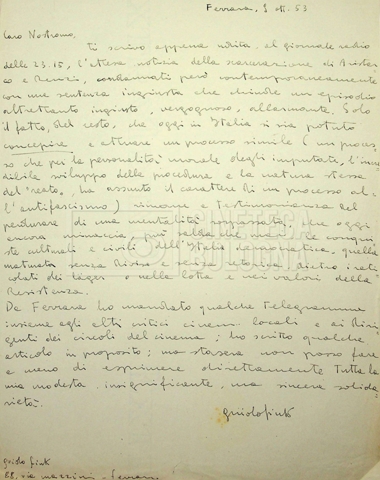 Ferrara, 8 ott. 53
Caro Nostromo,
Ti scrivo appena udita, al giornale radio
delle 23.15, l'attesa notizia della scarcerazione di Aristar
co e Renzi, condannati però contemporaneamente
con una sentenza ingiusta che chiude un episodio
altrettanto ingiusto, vergognoso, allarmante. Solo
il fatto, del resto, che oggi in Italia si sia potuto
concepire e attuare un processo simile (un proces
so che per la personalità morale degli imputati, l'incre
dibile sviluppo della procedura e la natura stessa
del "reato", ha assunto il carattere di un processo al-
l'antifascismo) rimane a testimonianza del
perdurare di una mentalità sorpassata, che oggi
ancora minaccia più salda che mai le conqui
ste culturali e civili dell'Italia democratica, quella
maturata senza e senza retorica dietro i reti
colati dei lager o nella lotta e nei valori della
Resistenza.
Da Ferrara ho mandato qualche telegramma
insieme agli altri critici cinem. locali e ai Diri
genti dei circoli del cinema; ho scritto qualche
articolo in proposito; ma stasera non posso fare
a meno di esprimere direttamente tutta la
mia modesta, insignificante, ma sincera solida
rietà.
Guido Fink
guido fink
via mazzini - Ferrara